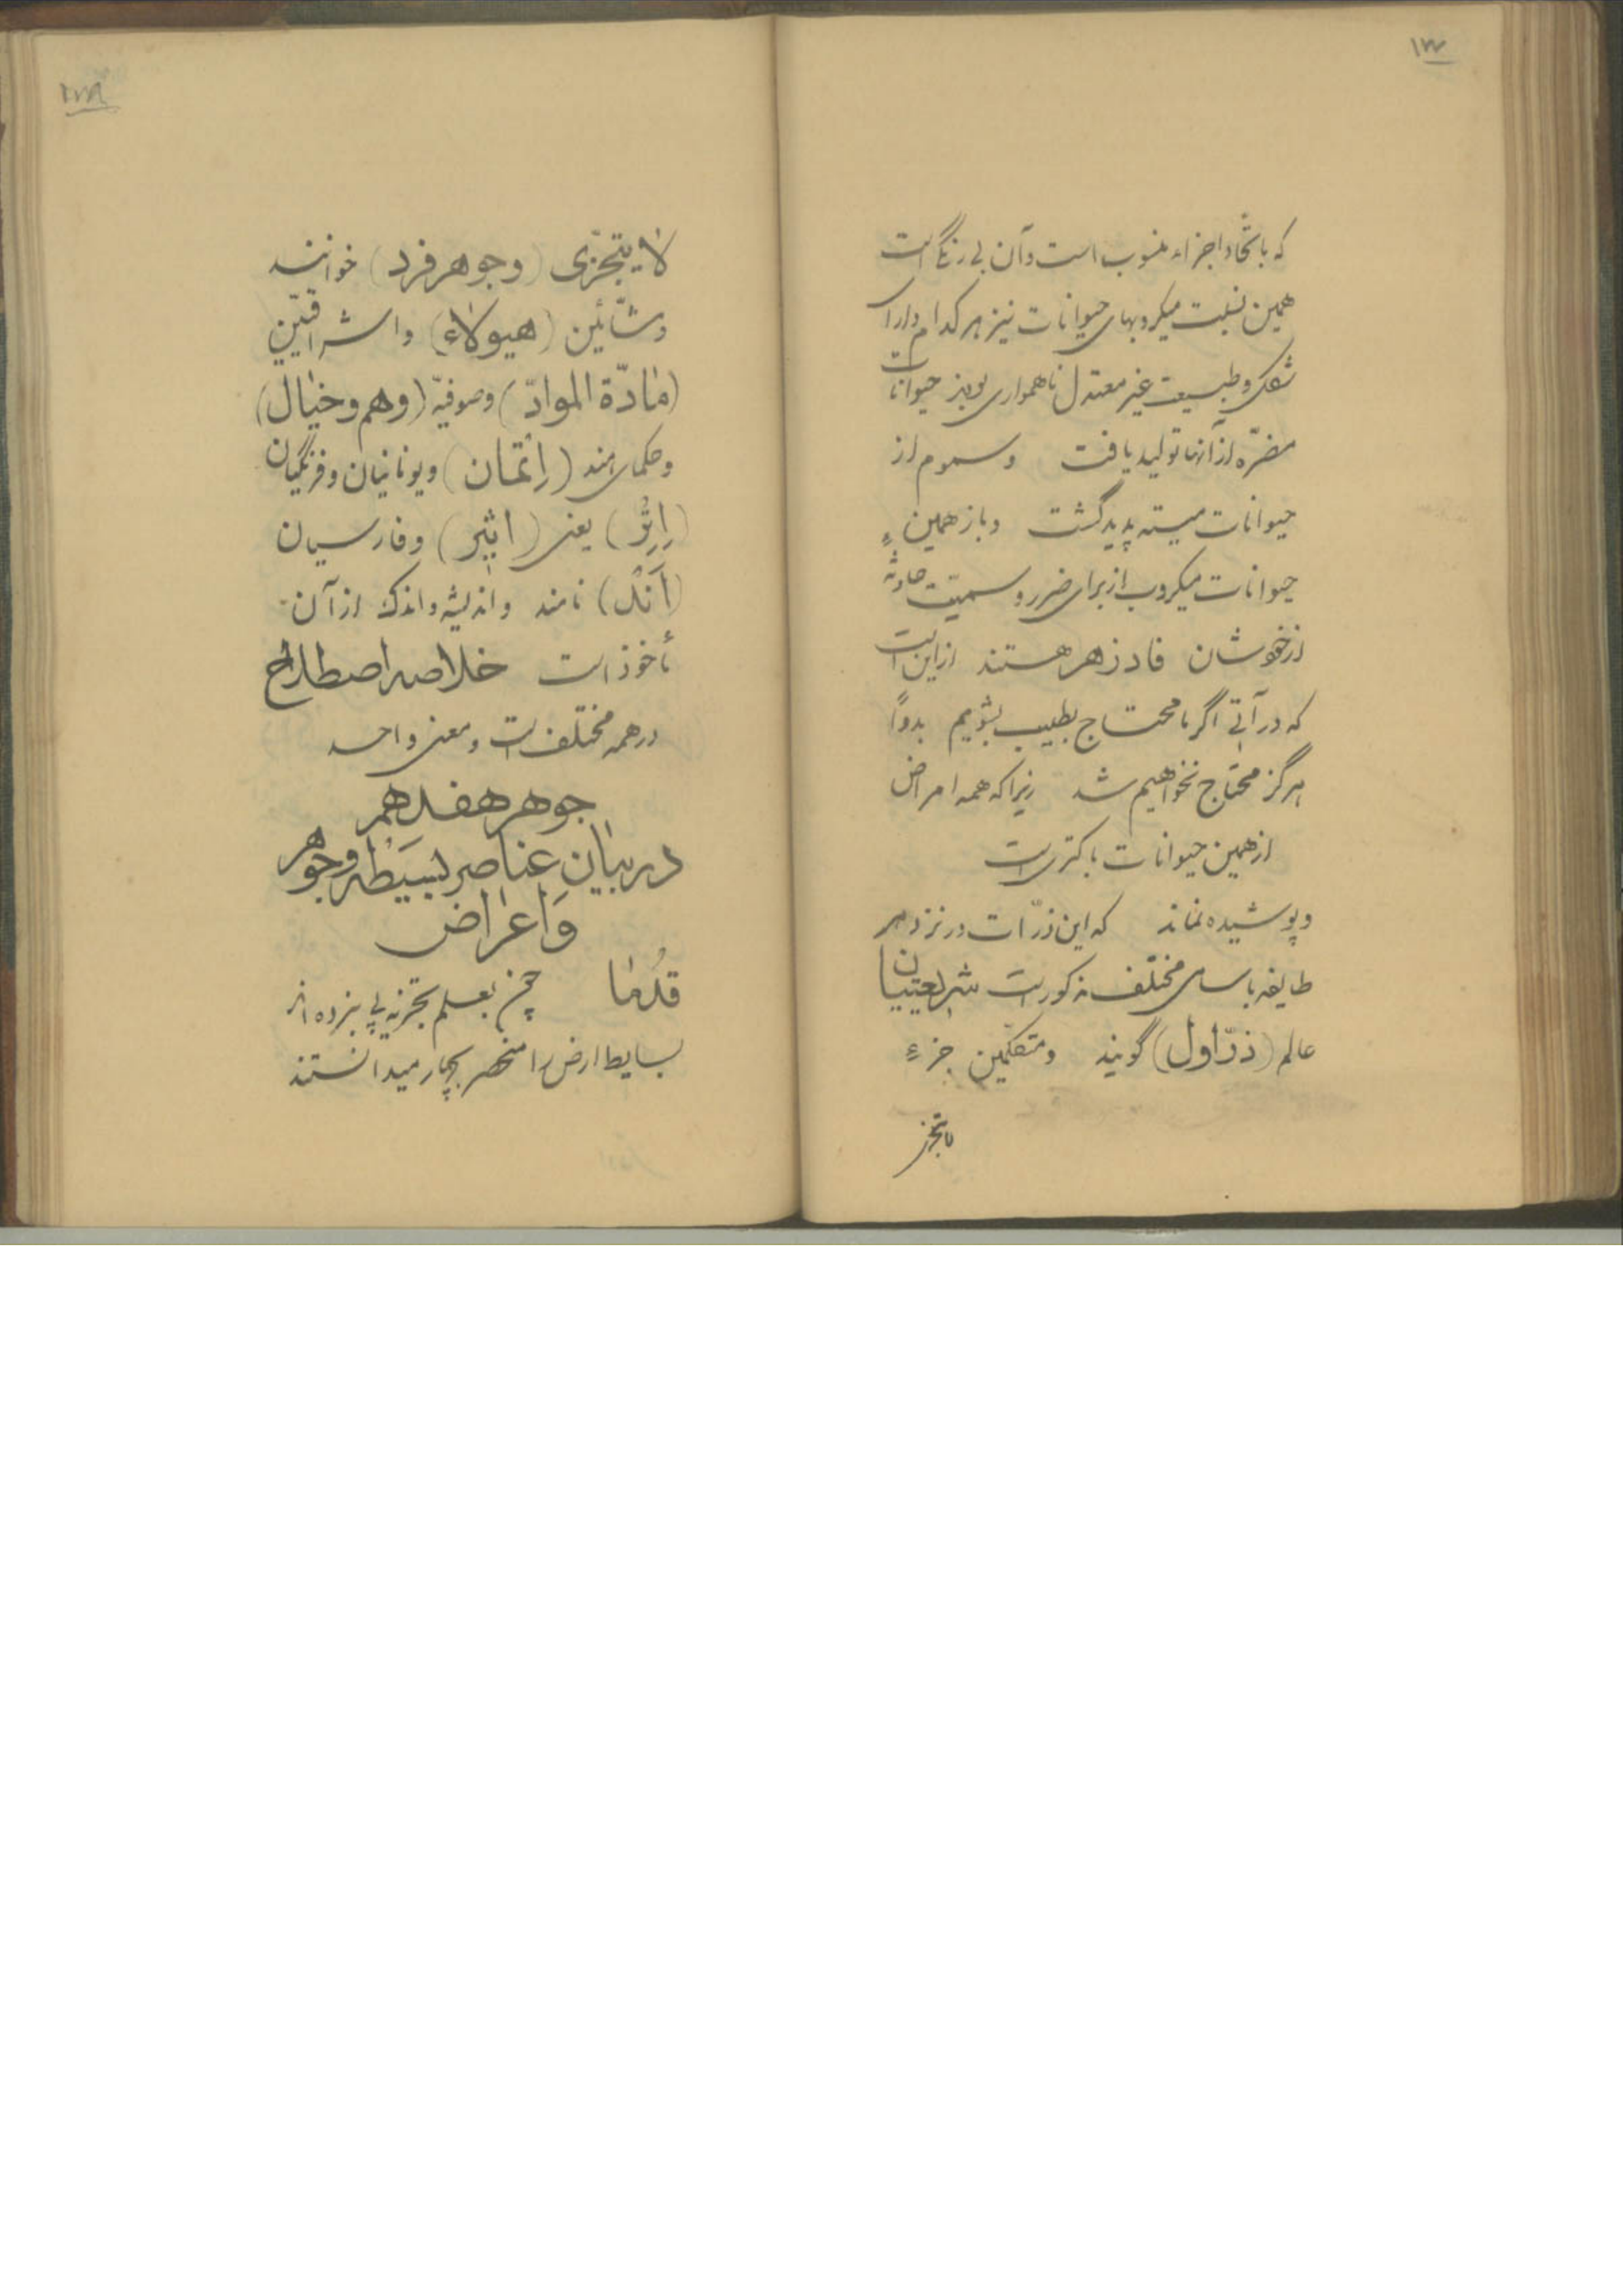 ۱۷۷
که باتّحاد اجزاء منسوب است و آن بی رنگ است
همین نسبت میکروبهای حیوانات نیز هر کدام دارای
شکل و طبیعت غیر معتدل ناهمواری بوده حیوانات
مضرّه از آنها تولید یافت و سموم از
حیوانات میسته پدید گشت و باز همین
حیوانات میکروب از برای ضرر و سمیّت حادثه
از خودشان فادزهر هستند از این است
که در آتی اگر ما محتاج بطبیب بشویم بدوا
هرگز محتاج نخواهیم شد زیرا که همه امراض
از همین حیوانات باکتری است
و پوشیده نماند که این ذرّات در نزد هر
طایفه باسامی مختلف مذکور است شریعتیان
عالم (ذرّ اول) گویند و متکلّمین جزء
لایتجز
۱۷۸
لا یتجزّی (و جوهر فرد) خوانند
و مشّائین (هیولاء) و اشراقیّین
(مادّة الموادّ) و صوفیّه (وهم و خیال)
و حکمای هند (اِتمان) و یونانیان و فرنگیان
(اِتِر) یعنی (اثیر) و فارسیان
(آنَک) نامند و اندیشه و اندک از آن
مأخوذ است خلاصه اصطلاح
در همه مختلف است و معنی واحد
جوهر هفدهم
در بیان عناصر بسیطه و جوهر
و اعراض
قدما چون بعلم تجزیه پی نبرده اند
بسایط ارض را منحصر بچهار میدانستند